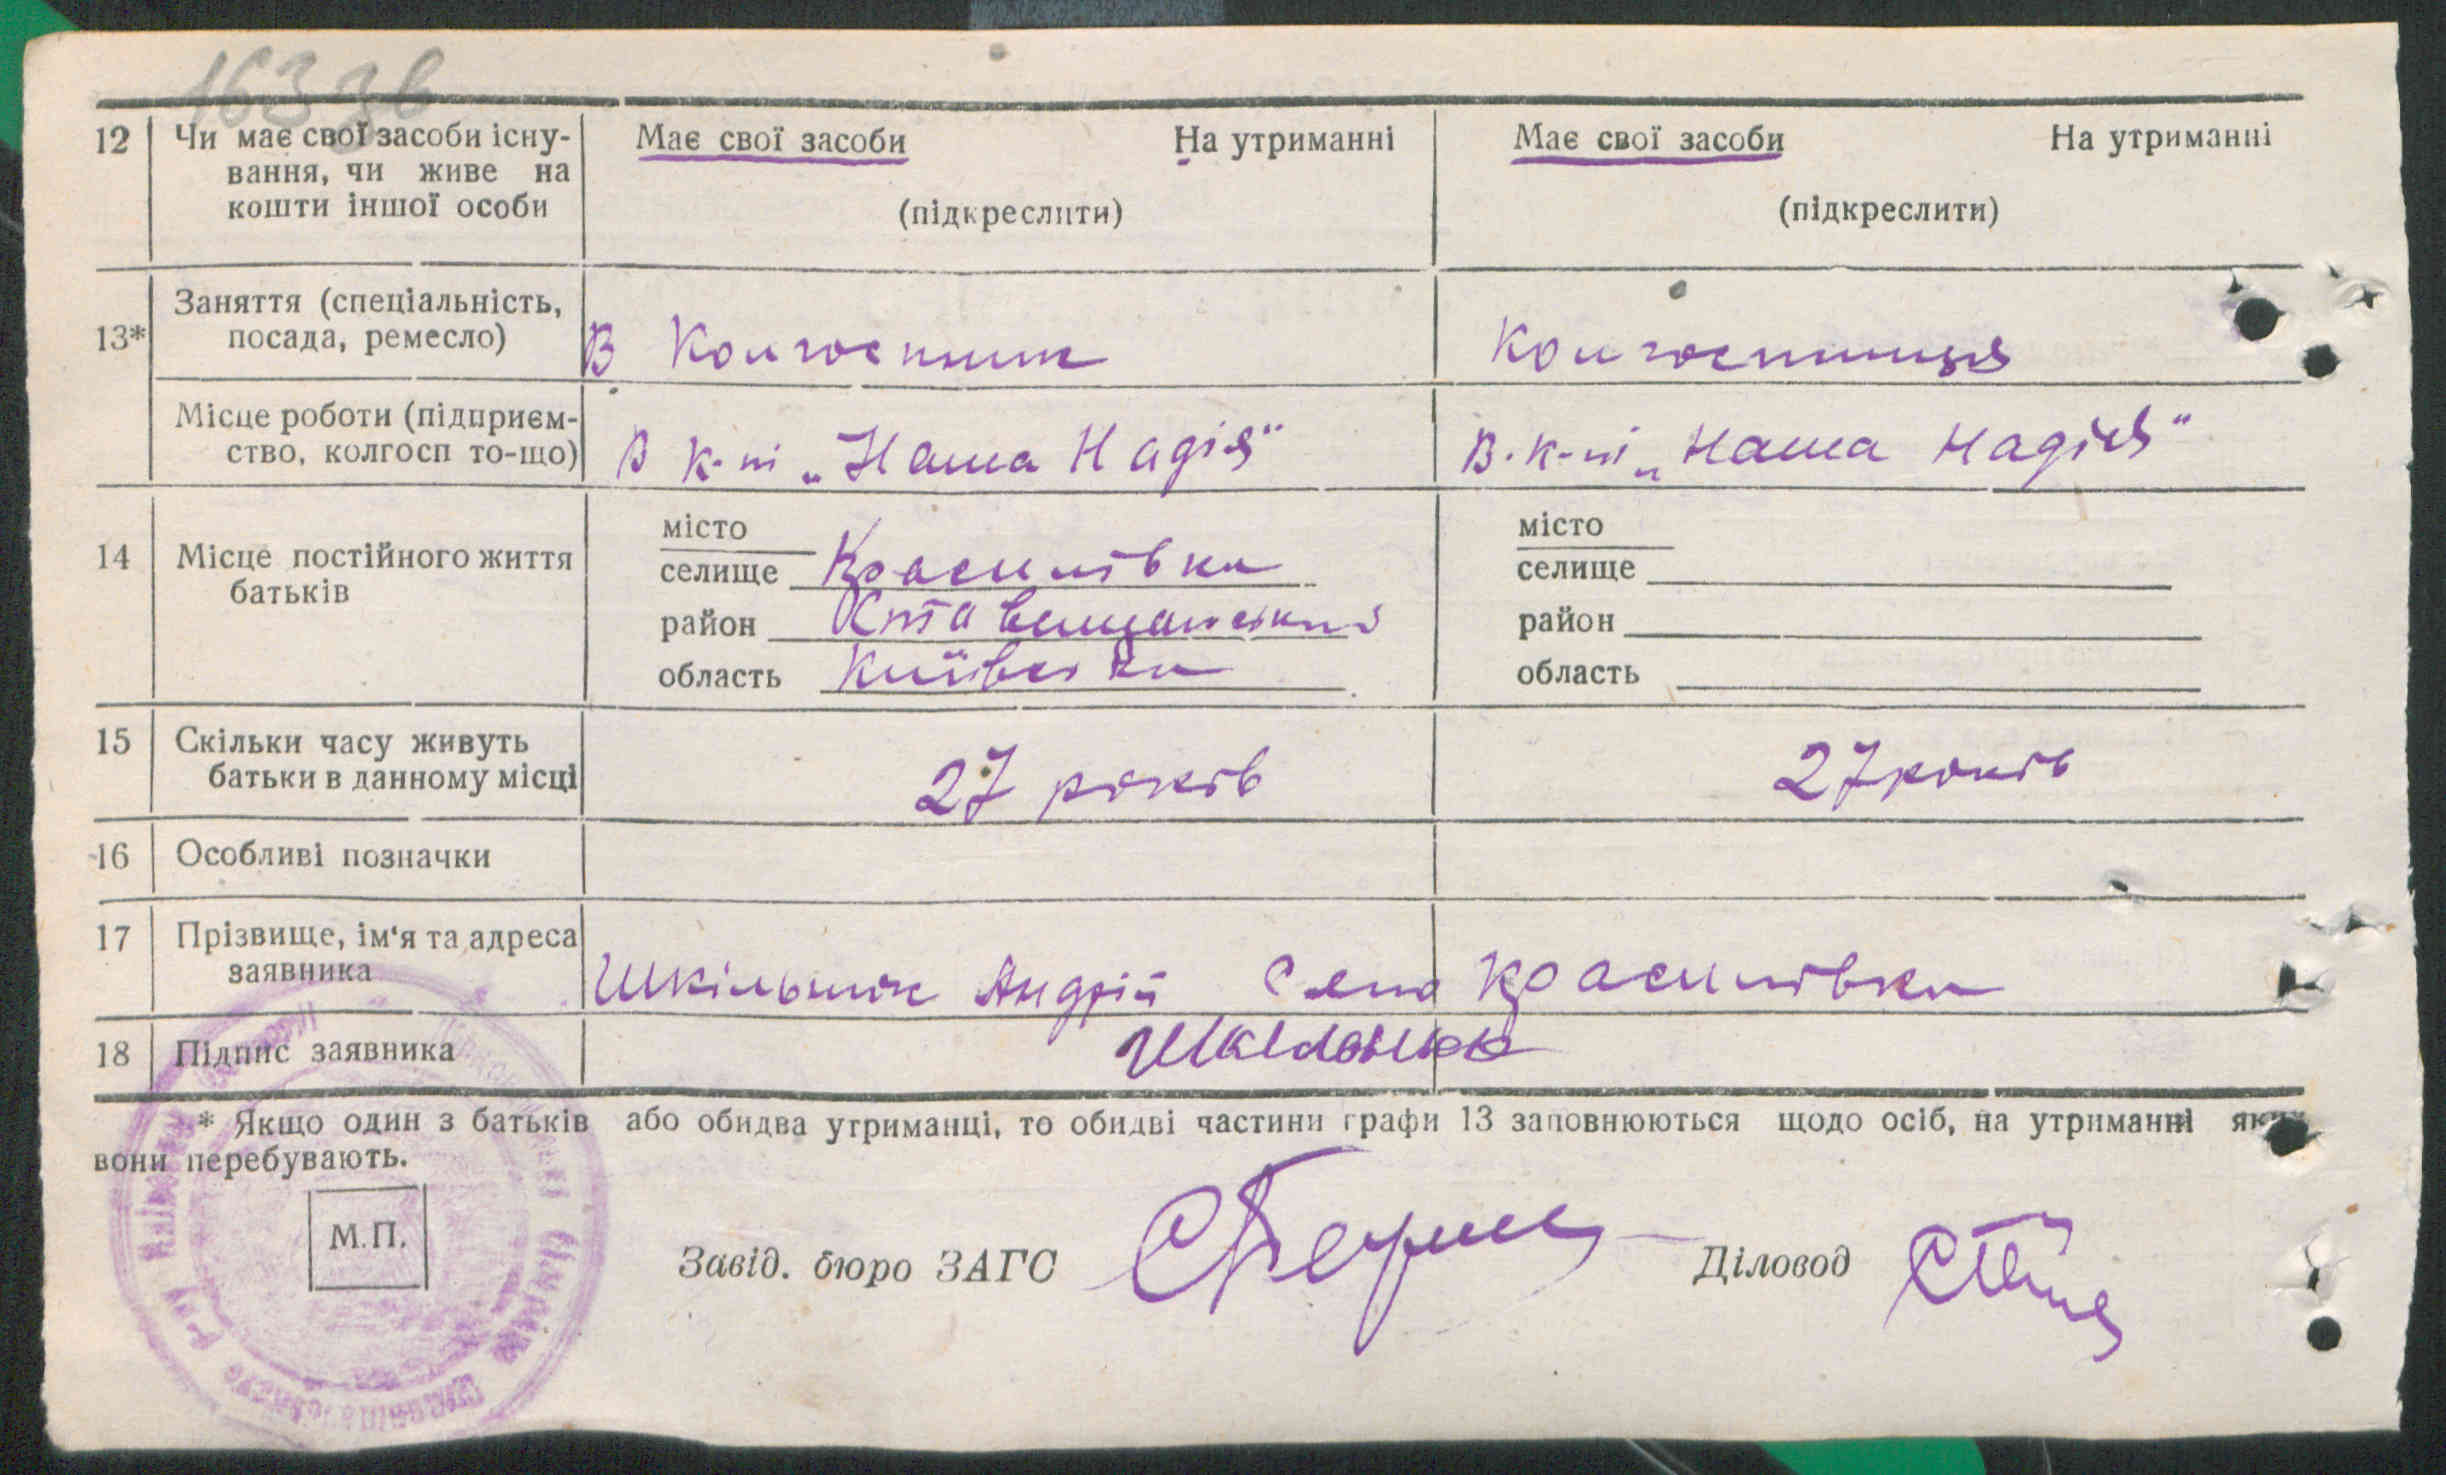 12 Чи має свої засоби існу- Має свої засоби На утриманні Має свої засоби На утриманні
вання, чи живе на
кошти іншої особи (підкреслити) (підкреслити)
Заняття (спеціальність,
13* посада, ремесло) В Колгоспник Колгоспниця
Місце роботи (підприєм-
ство, колгосп то-що) В к-пі „Наша Надія" В. к-пі „Наша Надія"
місто місто
14 Місце постійного життя селище Красилівка селище
батьків район Ставищанський район
область Київська область
15 Скільки часу живуть
батьки в данному місці 27 років 27 років
16 Особливі позначки
17 Прізвище, ім'я та адреса
заявника Шкільнюк Андрій Село Красилівка
18 Підпис заявника
* Якщо один з батьків або обидва утриманці, то обидві частини графи 13 заповнюються щодо осіб, на утриманні яких
вони перебувають.
М.П.
Завід. бюро ЗАГС Діловод